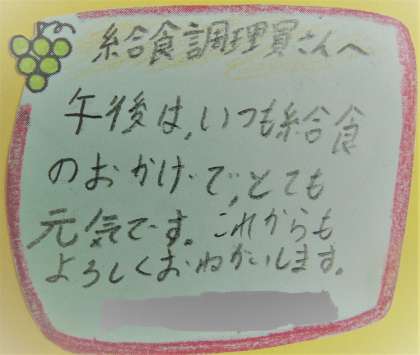 給食調理員さんへ
午後は、いつも給食
のおかげで、とても
元気です。これからも
よろしくおねがいします。